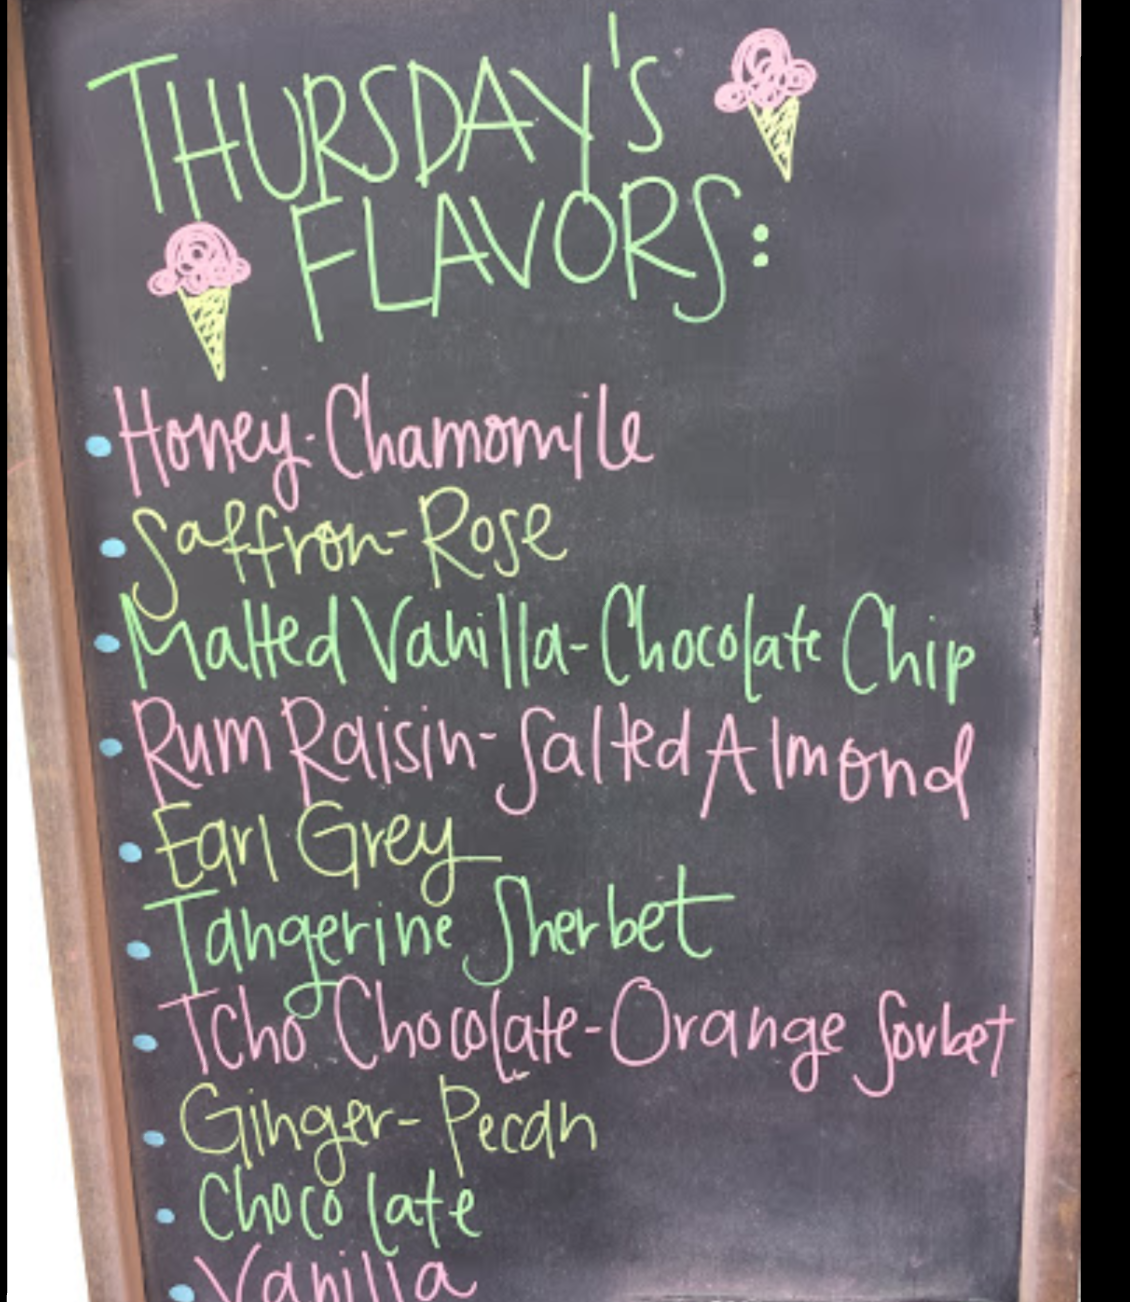 THURSDAY'S
FLAVORS:
• Honey-Chamomile
• Saffron-Rose
• Malted Vanilla-Chocolate Chip
• Rum Raisin-Salted Almond
• Earl Grey
• Tangerine Sherbet
• Tcho Chocolate-Orange Sorbet
• Ginger-Pecan
• Chocolate
• Vanilla